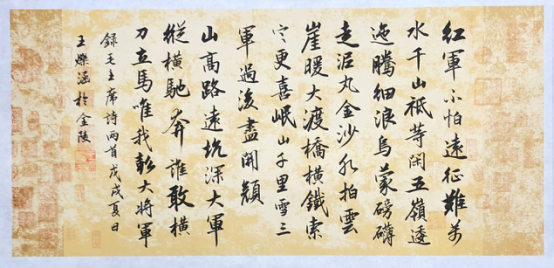 紅軍不怕遠征難萬
水千山祗等閑五嶺逶
迤騰細浪烏蒙磅礴
走泥丸金沙水拍雲
崖暖大渡橋橫鐵索
寒更喜岷山千里雪三
軍過後盡開顏
山高路遠坑深大軍
縱橫馳奔誰敢橫
刀立馬唯我彭大將軍
錄毛主席詩兩首戊戌夏日
王爍涵於金陵